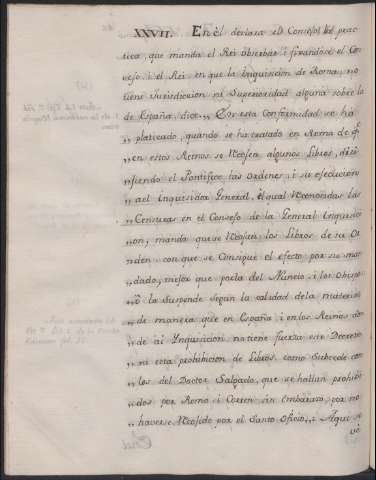 XXVII. En él declara el Consejo la prac
tica, que manda el Rei observar i firandose el Con
sejo, i el Rei, en que la Inquisicion de Roma, no
tiene Jurisdiccion ni Superioridad alguna sobre la
de España, dice „ Por esta Conformidad se há
„ platicado, quando se há tratado en Roma de qe
„ en estos Reinos se recojan algunos Libros, diri
„ giendo el Pontifice las ordenes, i su ejecucion
„ al Inquisidor General, el qual reconocidas las
„ Censuras en el Consejo de la General Inquisici
„ on, manda que se recojan los Libros de su or
„ den con que se consigue el efecto por su man
„ dado, mejor que por la del Nuncio, i los Obispos
„ ó la Suspende segun la calidad de la materia
„ de manera que en España, i en los Reinos don
„ de ai Inquisicion no tiene fuerza este Decreto
„ ni esta prohibicion de Libros, como Subcede con
„ los del Doctor Salgado, que se hallan prohibi
„ dos por Roma i Corren sin embarazo, por no
„ haverse recojido por el Santo Oficio „ i Aqui se
vè